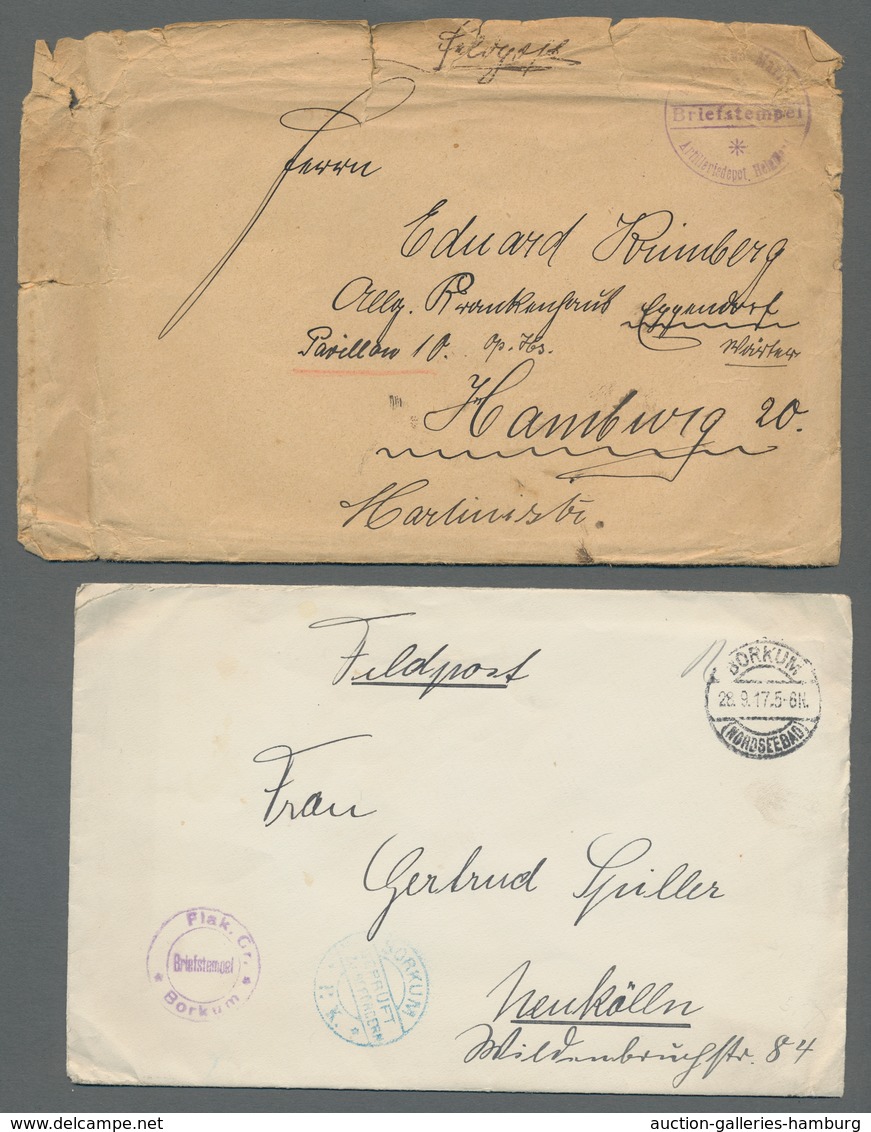 Feldpost
Briefstempel
Artilleriedepot
Herrn
Eduard Krimberg
Allg. Krankenhaus Eppendorf
Pavillon 10. Op. Hs. Wärter
Hamburg 20.
Martinistr.
Feldpost
BORKUM
28.9.17.5-6N.
(NORDSEEBAD)
Frau
Gertrud Spiller
Flak. Gr.
Briefstempel
* Borkum *
BORKUM
GEPRÜFT
P. K.
Neukölln
Wildenbruchstr. 84
auction-galleries-hamburg